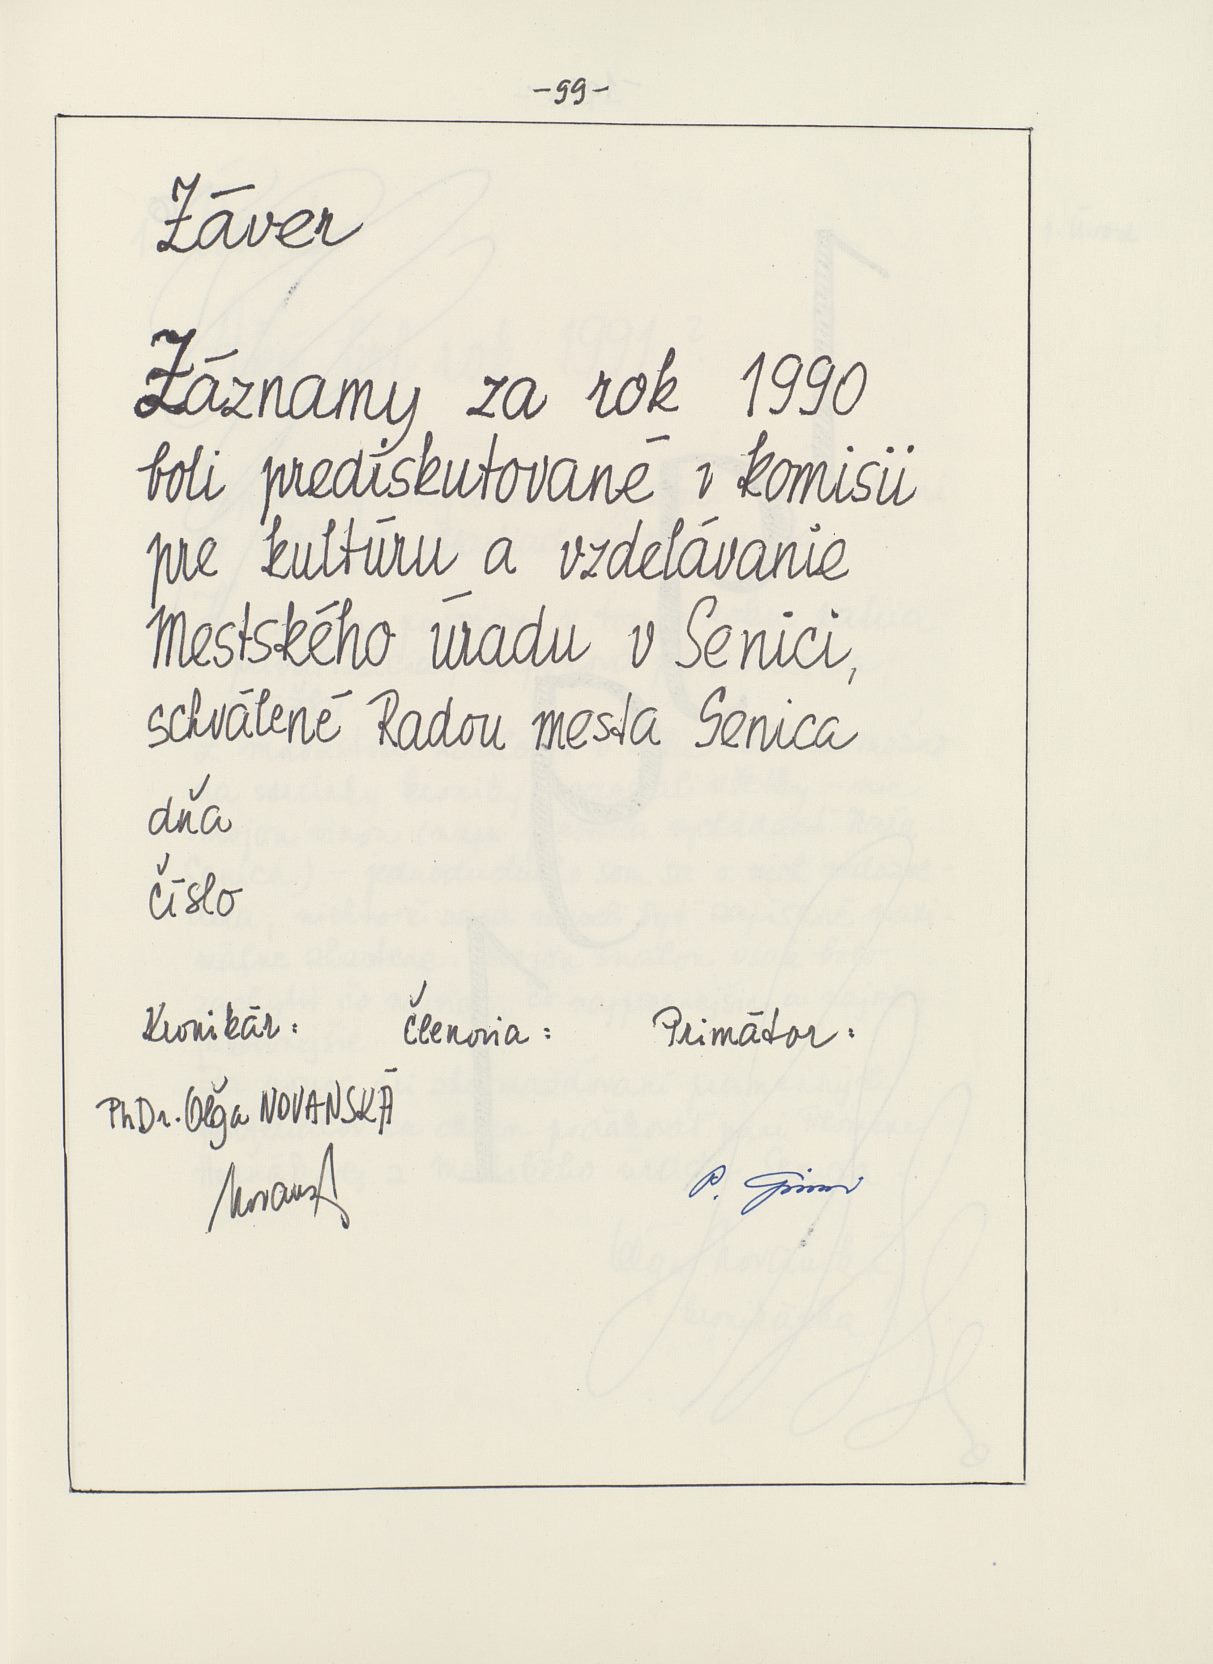 -99-
Záver
Záznamy za rok 1990
boli prediskutované v komisii
pre kultúru a vzdelávanie
Mestského úradu v Senici,
schválené Radou mesta Senica
dňa
číslo
Kronikár: Členovia: Primátor:
PhDr. Oľga NOVANSKÁ